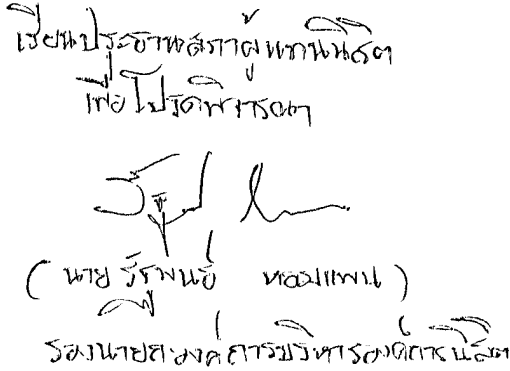 เรียนประธานสภาผู้แทนนิสิต
เพื่อโปรดพิจารณา
(นาย รัฐพันธ์ หอมแพน)
รองนายกองค์การบริหารองค์การนิสิต